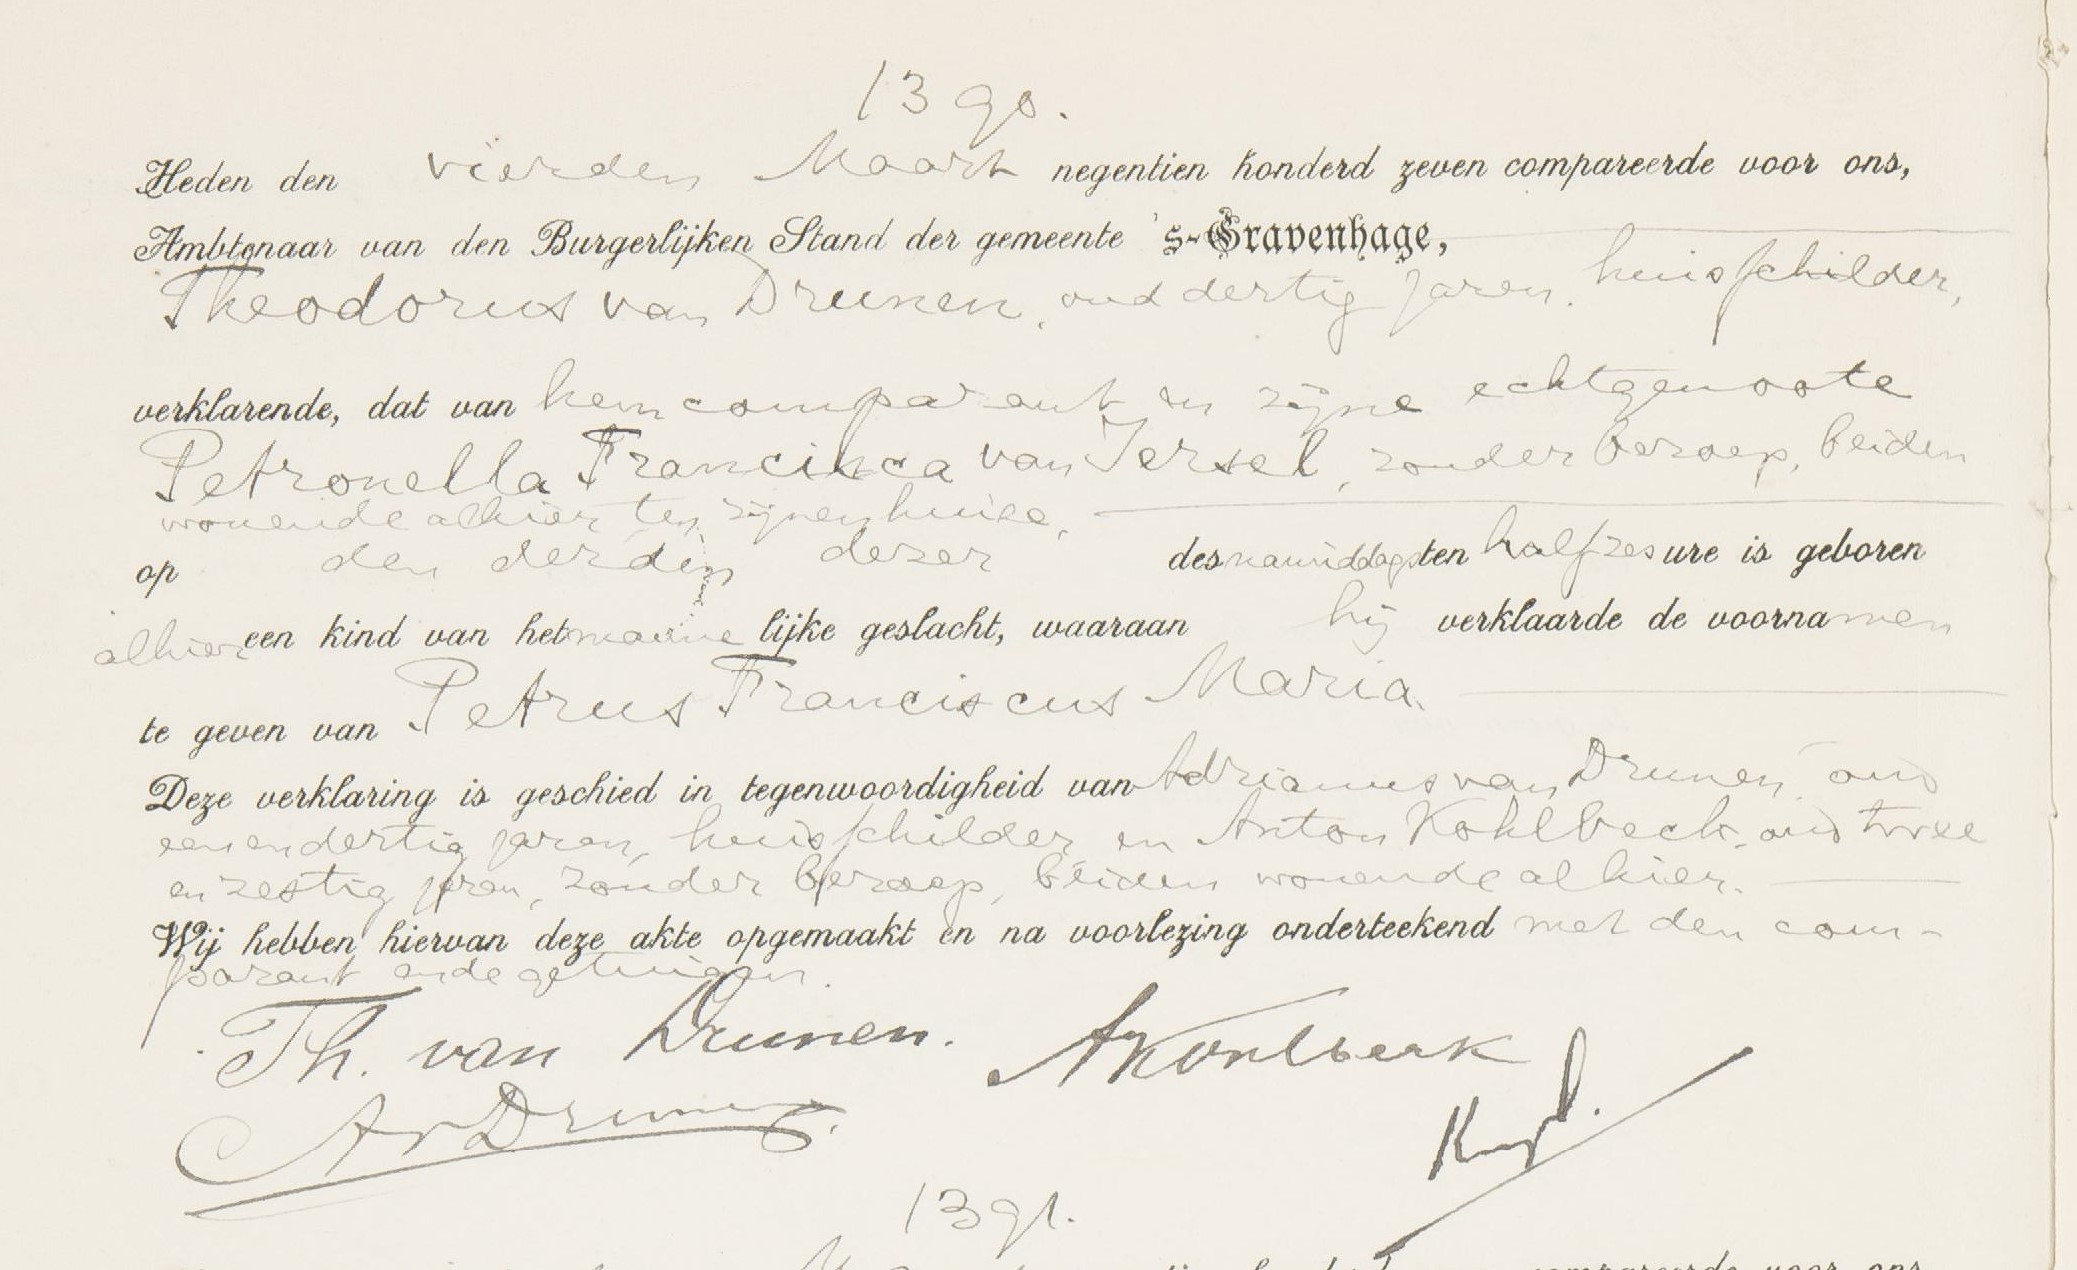 1390.
Heden den vierden Maart negentien honderd zeven compareerde voor ons,
Ambtenaar van den Burgerlijken Stand der gemeente 's-Gravenhage,
Theodorus van Drunen, oud dertig jaren, huisschilder,
verklarende, dat van hem comparant en zijne echtgenoote
Petronella Francisca van Iersel, zonder beroep, beiden
wonende alhier ten zijnen huize,
op den derden dezer des namiddags ten half zes ure is geboren
alhier een kind van het mannelijke geslacht, waaraan hij verklaarde de voornamen
te geven van Petrus Franciscus Maria.
Deze verklaring is geschied in tegenwoordigheid van Adrianus van Drunen, oud
een en dertig jaren, huisschilder en Anton Kohlbeck, oud twee
en zestig jaren, zonder beroep, beiden wonende alhier.
Wij hebben hiervan deze akte opgemaakt en na voorlezing onderteekend met den com-
parant en de getuigen.
Th. van Drunen. AKohlbeck
AvDrunen.
1391.